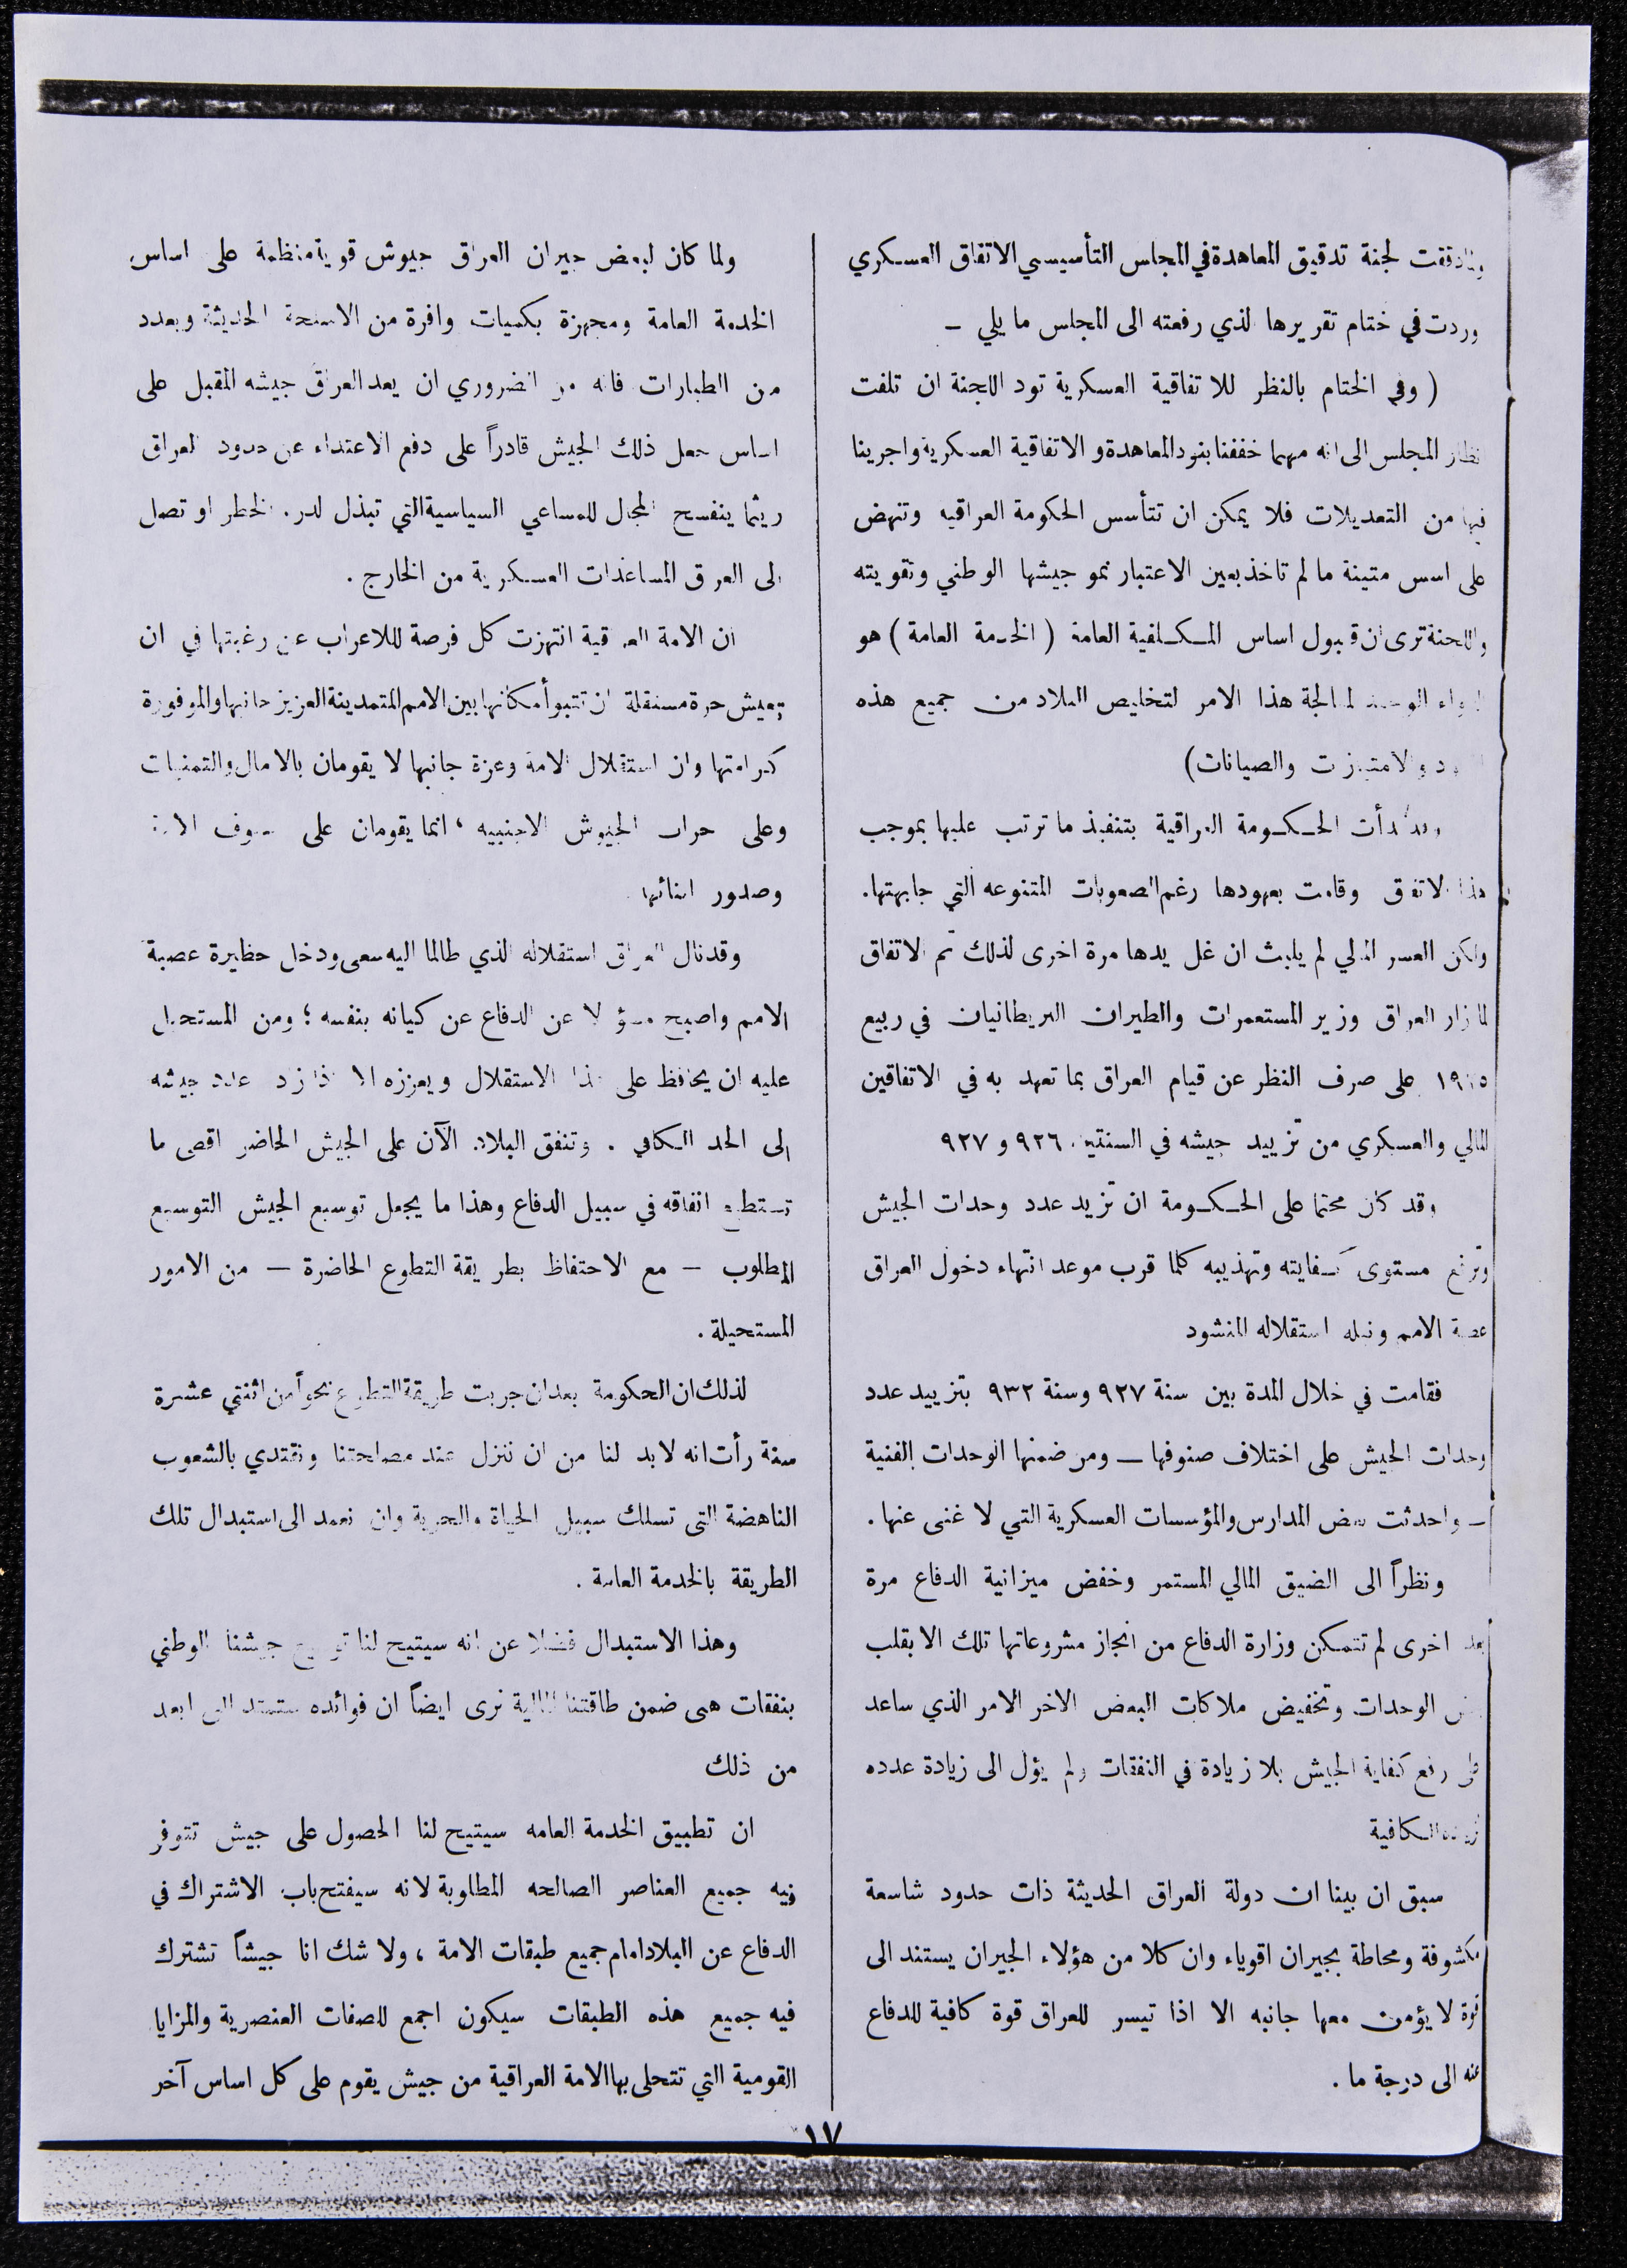 ولما دققت لجنة تدقيق المعاهدة في المجلس التأسيسي الاتفاق العسكري
وردت في ختام تقريرها الذي رفعته الى المجلس ما يلي –
( وفي الختام بالنظر للاتفاقية العسكرية تود اللجنة ان تلفت
انظار المجلس الى انه مهما خففنا بنود المعاهدة والاتفاقية العسكرية واجرينا
فيها من التعديلات فلا يمكن ان تتأسس الحكومة العراقيه وتنهض
على اسس متينة ما لم تاخذ بعين الاعتبار نمو جيشها الوطني وتقويته
واللجنة ترى ان قبول اساس المكلفية العامة ( الخدمة العامة ) هو
الدواء الوحيد لمعالجة هذا الامر لتخليص البلاد من جميع هذه
والامتيازات والصيانات)
وقد بدأت الحكومة العراقية بتنفيذ ما ترتب عليها بموجب
هذا الاتفاق وقامت بعهودها رغم الصعوبات المتنوعه التي جابهتها.
ولكن العسر المالي لم يلبث ان غل يدها مرة اخرى لذلك تم الاتفاق
لما زار العراق وزير المستعمرات والطيران البريطانيان في ربيع
١٩٢٥ على صرف النظر عن قيام العراق بما تعهد به في الاتفاقين
المالي والعسكري من تزييد جيشه في السنتين ٩٢٦ و ٩٢٧
وقد كان محتما على الحكومة ان تزيد عدد وحدات الجيش
وترفع مستوى كفايته وتهذيبه كلما قرب موعد انتهاء دخول العراق
عصبة الامم ونيله استقلاله المنشود
فقامت في خلال المدة بين سنة ٩٢٧ وسنة ٩٣٢ بتزييد عدد
وحدات الجيش على اختلاف صنوفها — ومن ضمنها الوحدات الفنية
— واحدثت بعض المدارس والمؤسسات العسكرية التي لا غنى عنها .
ونظراً الى الضيق المالي المستمر وخفض ميزانية الدفاع مرة
بعد اخرى لم تتمكن وزارة الدفاع من انجاز مشروعاتها تلك الا بقلب
بعض الوحدات وتخفيض ملاكات البعض الاخر الامر الذي ساعد
على رفع كفاية الجيش بلا زيادة في النفقات ولم يؤل الى زيادة عدده
الكافية
سبق ان بينا ان دولة العراق الحديثة ذات حدود شاسعة
مكشوفة ومحاطة بجيران اقوياء وان كلا من هؤلاء الجيران يستند الى
قوة لا يؤمن معها جانبه الا اذا تيسر للعراق قوة كافية للدفاع
عنه الى درجة ما .
ولما كان لبعض جيران العراق جيوش قوية منظمة على اساس
الخدمة العامة ومجهزة بكميات وافرة من الاسلحة الحديثة وبعدد
من الطيارات فانه من الضروري ان يعد العراق جيشه المقبل على
اساس جعل ذلك الجيش قادراً على دفع الاعتداء عن حدود العراق
ريثما ينفسح المجال للمساعي السياسية التي تبذل لدرء الخطر او تصل
الى العراق المساعدات العسكرية من الخارج .
ان الامة العراقية انتهزت كل فرصة للاعراب عن رغبتها في ان
تعيش حرة مستقلة ان تتبوأ مكانها بين الامم المتمدينة العزيز جانبها والموفورة
كرامتها وان استقلال الامة وعزة جانبها لا يقومان بالامال والتمنيات
وعلى حراب الجيوش الاجنبيه ، انما يقومان على سيوف الامة
وصدور ابنائها
وقد نال العراق استقلاله الذي طالما اليه سعى ودخل حظيرة عصبة
الامم واصبح مسؤولا عن الدفاع عن كيانه بنفسه ؛ ومن المستحيل
عليه ان يحافظ على هذا الاستقلال ويعززه الا اذا زاد عدد جيشه
الى الحد الكافي . وتنفق البلاد الآن على الجيش الحاضر اقصى ما
تستطيع انفاقه في سبيل الدفاع وهذا ما يجعل توسيع الجيش التوسيع
المطلوب – مع الاحتفاظ بطريقة التطوع الحاضرة — من الامور
المستحيلة .
لذلك ان الحكومة بعد ان جربت طريقة التطوع نحواً من اثنتي عشرة
سنة رأت انه لا بد لنا من ان ننزل عند مصلحتنا ونقتدي بالشعوب
الناهضة التي تسلك سبيل الحياة والحرية وان نعمد الى استبدال تلك
الطريقة بالخدمة العامة .
وهذا الاستبدال فضلا عن انه سيتيح لنا توسيع جيشنا الوطني
بنفقات هي ضمن طاقتنا المالية نرى ايضاً ان فوائده ستمتد الى ابعد
من ذلك
ان تطبيق الخدمة العامه سيتيح لنا الحصول على جيش تتوفر
فيه جميع العناصر الصالحه المطلوبة لانه سيفتح باب الاشتراك في
الدفاع عن البلاد امام جميع طبقات الامة ، ولا شك انا جيشاً تشترك
فيه جميع هذه الطبقات سيكون اجمع للصفات العنصرية والمزايا
القومية التي تتحلى بها الامة العراقية من جيش يقوم على كل اساس آخر
١٧